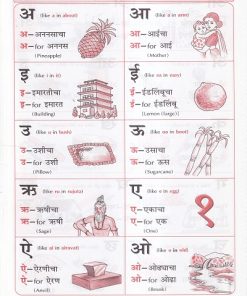 अ (like a in about)
अ–अननसाचा
अ–for अननस
(Pineapple)
आ (like a in arm)
आ–आईचा
आ–for आई
(Mother)
इ (like i in it)
इ–इमारतीचा
इ–for इमारत
(Building)
ई (like ea in easy)
ई–ईडलिंबूचा
ई–for ईडलिंबू
[Lemon (large)]
उ (like u in bush)
उ–उशीचा
उ–for उशी
(Pillow)
ऊ (like oo in boot)
ऊ–ऊसाचा
ऊ–for ऊस
(Sugarcane)
ऋ (like ru in rujuta)
ऋ–ऋषीचा
ऋ–for ऋषी
(Sage)
ए (like e in egg)
ए–एकाचा
ए–for एक
(One)
१
ऐ (like ai in airavat)
ऐ–ऐरणीचा
ऐ–for ऐरण
(Anvil)
ओ (like o in old)
ओ–ओढ्याचा
ओ–for ओढा
(Brook)